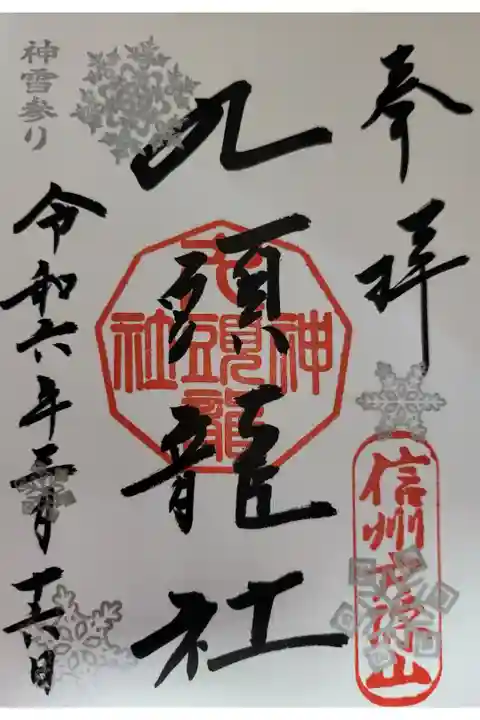 奉拝
信州戸隠山
九頭龍社
九頭龍神社
神雪参り
令和六年三月十六日